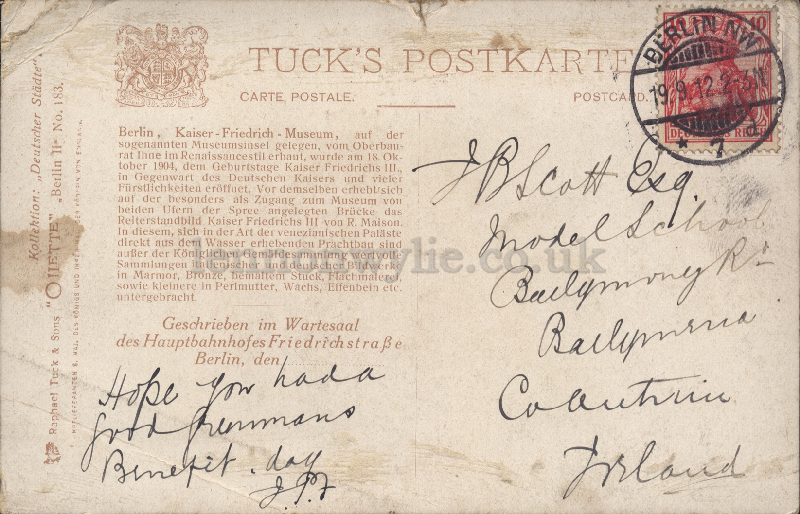 TUCK'S POSTKARTE
CARTE POSTALE.
POSTCARD.
BERLIN NW
19.9.12.2-3N
* 7 d
10 10
DEUTSCHES REICH
Kollektion: „Deutscher Städte".
Raphael Tuck & Sons "OILETTE" „Berlin II" No. 183.
Berlin, Kaiser-Friedrich-Museum, auf der
sogenannten Museumsinsel gelegen, vom Oberbau-
rat Ihne im Renaissancestil erbaut, wurde am 18. Ok-
tober 1904, dem Geburtstage Kaiser Friedrichs III.,
in Gegenwart des Deutschen Kaisers und vieler
Fürstlichkeiten eröffnet. Vor demselben erhebt sich
auf der besonders als Zugang zum Museum von
beiden Ufern der Spree angelegten Brücke das
Reiterstandbild Kaiser Friedrichs III von R. Maison.
In diesem, sich in der Art der venezianischen Paläste
direkt aus der Wasser erhebenden Prachtbau sind
außer der Königlichen Gemäldesammlung wertvolle
Sammlungen italienischer und deutscher Bildwerke
in Marmor, Bronze, bemaltem Stuck, Flachmalerei,
sowie kleinere in Perlmutter, Wachs, Elfenbein etc.
untergebracht.
Geschrieben im Wartesaal
des Hauptbahnhofes Friedrichstraße
Berlin, den
Hope you had a
good
Benefit day
J.P.F
J B Scott Esq
Model School
Ballymoney Rd
Ballymena
Co Antrim
Ireland
lennonwylie.co.uk